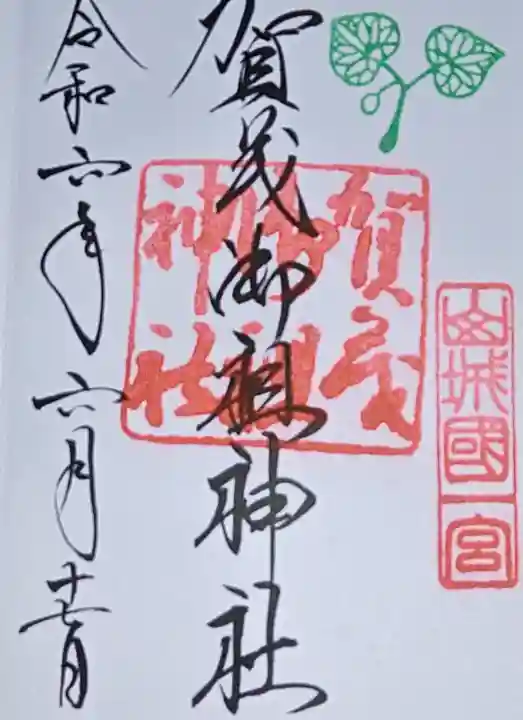 山城國一宮
賀茂御祖神社
賀茂
御祖
神社
令和六年六月十七日